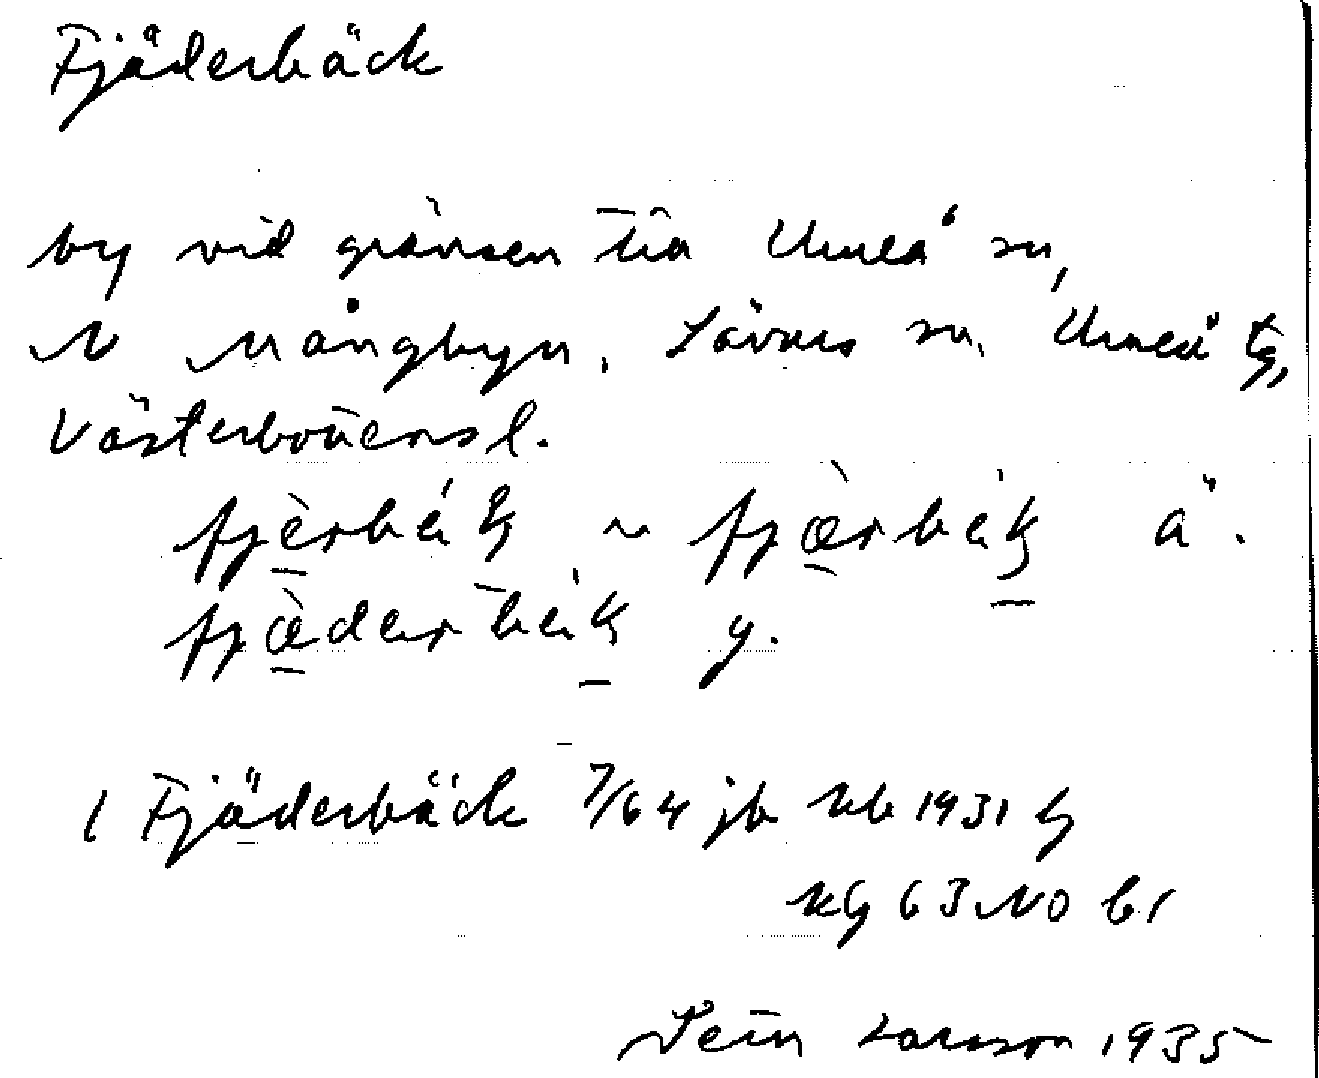 Fjäderbäck
by vid gränsen till Umeå sn,
N Mångbyn. Lövångers sn, Umeå tg,
Västerbottens l.
fjè̠rbék ~ fjæ̠̀rbék̠ ä.
fjæ̠̀derbék̠ y.
1 Fjäderbäck 7/64 jb kb 1931 h
kG 63 NO b1
Larsson 1935